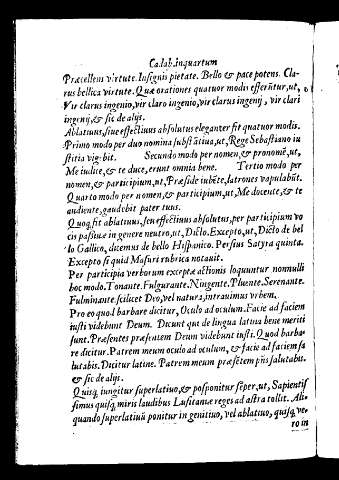 Ca.lab.in quartum
Præcellem virtute. Insignis pietate. Bello & pace potens. Cla-
rus bellica virtute. Quæ orationes quatuor modis efferūtur, ut,
Vir clarus ingenio, vir claro ingenio, vir clarus ingenij, vir clari
ingenij, & sic de alijs.
Ablatiuus, siue effectiuus absolutus eleganter fit quatuor modis.
Primo modo per duo nomina substātiua, ut, Rege Sebastiano iu
stitia vigebit. Secundo modo per nomen, & pronomē, ut,
Me iudice, & te duce, erunt omnia bene. Tertio modo per
nomen, & participium, ut, Præside iubēte, latrones vapulabūt.
Quarto modo per nomen, & participium, ut, Me docente, & te
audiente, gaudebit pater tuus.
Quoq; fit ablatiuus, seu effectiuus absolutus, per participium vo
cis passiuæ in genere neutro, ut, Dicto. Excepto, ut, Dicto de bel
lo Gallico, dicemus de bello Hispanico. Persius Satyra quinta.
Excepto si quid Masuri rubrica notauit.
Per participia verborum exceptæ actionis loquuntur nonnulli
hoc modo. Tonante. Fulgurante. Ningente. Pluente. Serenante.
Fulminante scilicet Deo, vel natura, intrauimus vrbem.
Pro eo quod barbare dicitur, Oculo ad oculum. Facie ad faciem
iusti videbunt Deum. Dicunt quæ de lingua latina bene meriti
sunt. Præsentes præsentem Deum videbunt iusti. Quod barba-
re dicitur. Patrem meum oculo ad oculum, & facie ad faciem sa
lutabis. Dicitur latine. Patrem meum præsētem p̄ns salutabis.
& sic de alijs.
Quisq; iungitur superlatiuo, & posponitur sēper, ut, Sapientis
simus quisq; miris laudibus Lusitaniæ reges ad astra tollit. Ali-
quando superlatiuū ponitur in genitiuo, vel ablatiuo, quisq; ve-
ro in